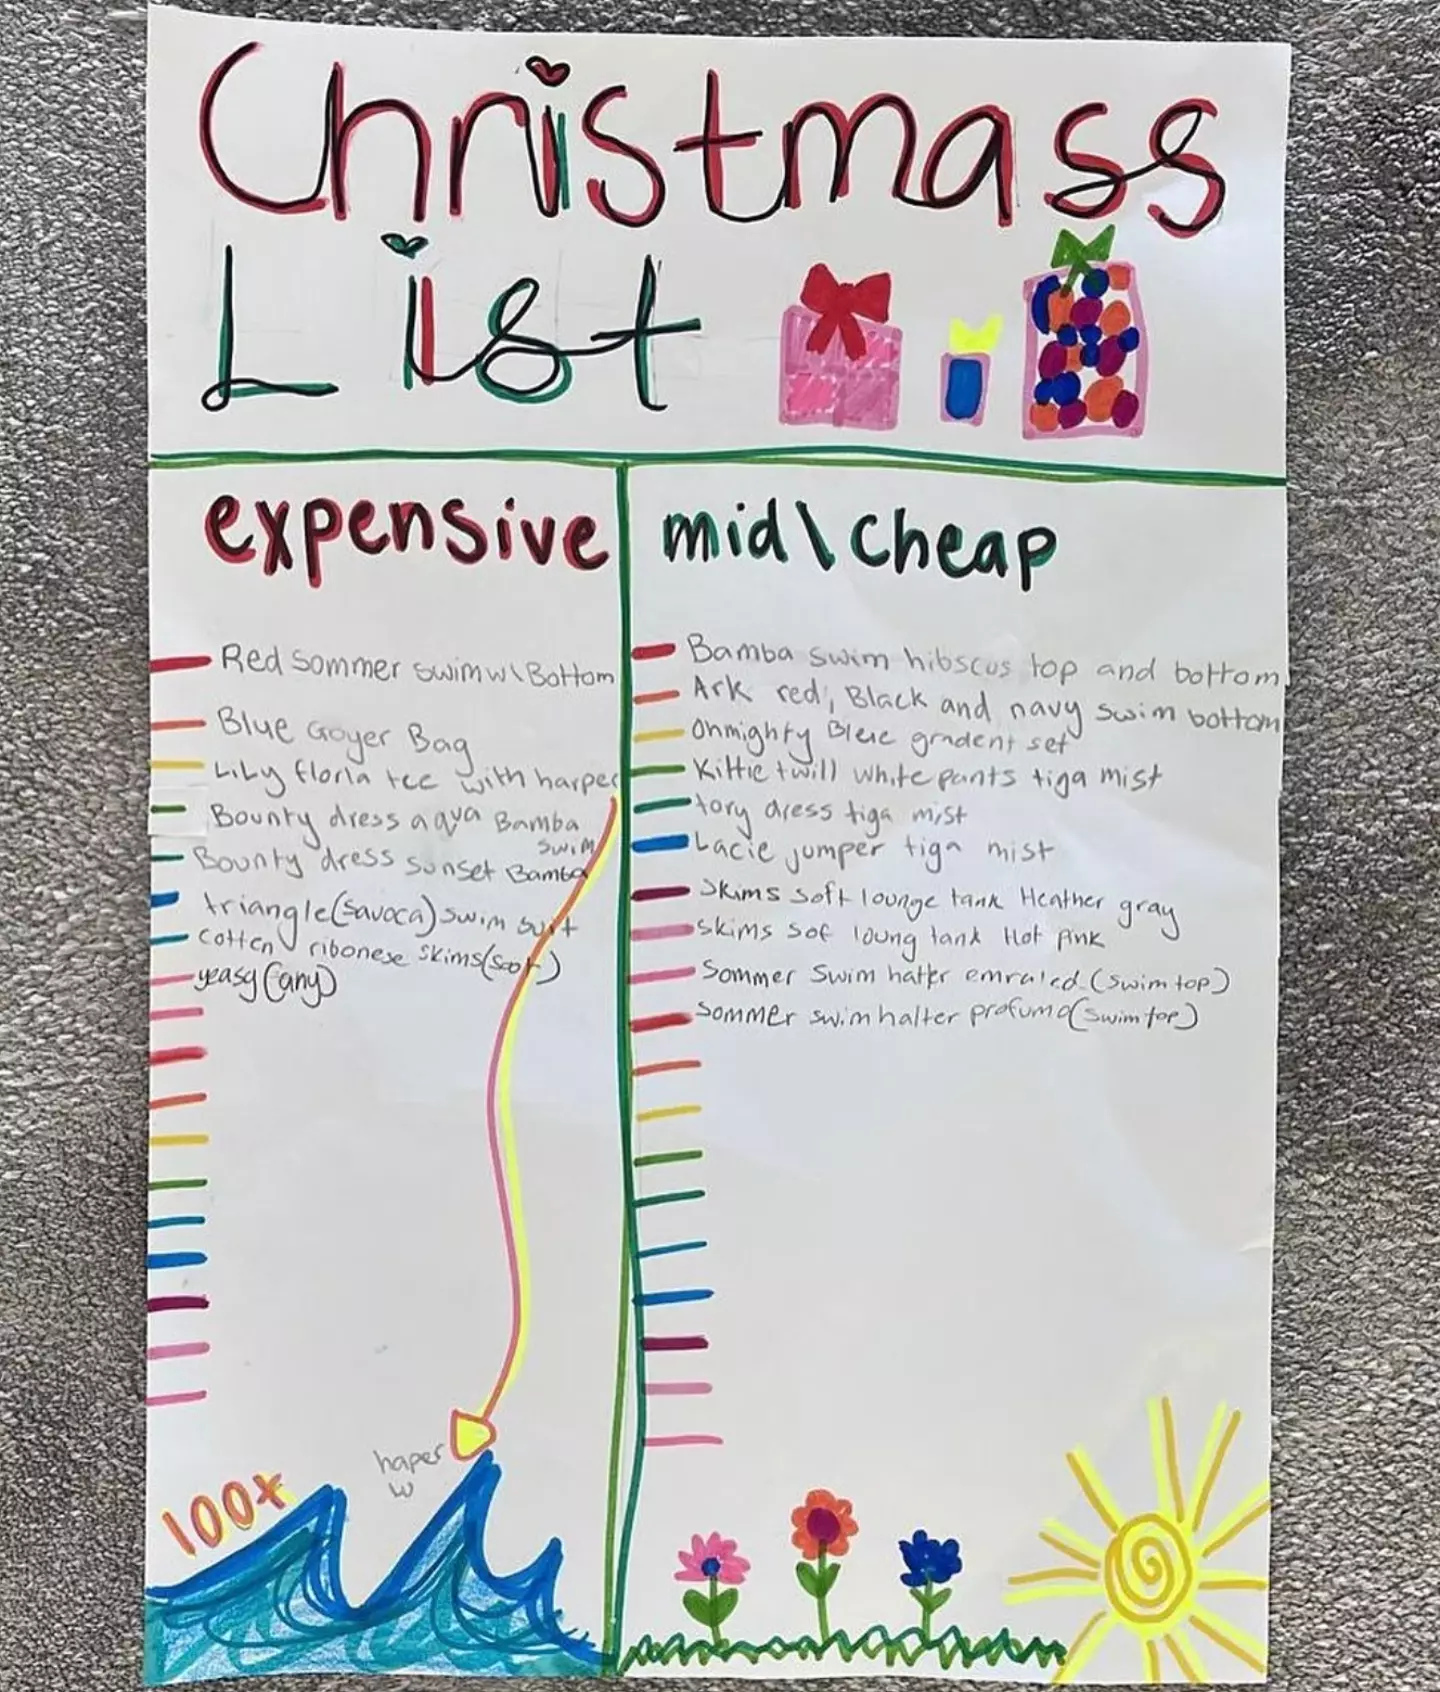 Christmass
List
expensive
mid\cheap
Red sommer swim w\Bottom
Blue Goyer Bag
LiLy florla tee with harper
Bounty dress aqua Bamba
swim
Bounty dress sunset Bamba
triangle(savoca) swim suit
cotten ribonese skims(soot)
yeasy(any)
haper
w
100+
Bamba swim hibscus top and bottom
Ark red, Black and navy swim bottom
Ohmighty Blue gradent set
Kittie twill white pants tiga mist
tory dress tiga mist
Lacie jumper tiga mist
Skims soft lounge tank Heather gray
skims sof loung tank Hot pink
Sommer swim halter emraled (swim top)
sommer swim halter profumo(swim top)